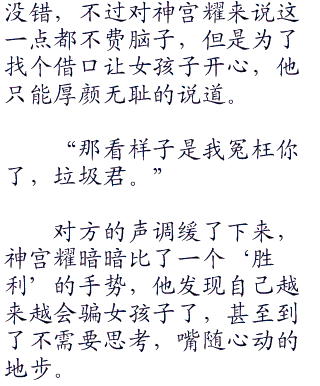 没错，不过对神宫耀来说这
一点都不费脑子，但是为了
找个借口让女孩子开心，他
只能厚颜无耻的说道。
“那看样子是我冤枉你
了，垃圾君。”
对方的声调缓了下来，
神宫耀暗暗比了一个‘胜
利’的手势，他发现自己越
来越会骗女孩子了，甚至到
了不需要思考，嘴随心动的
地步。